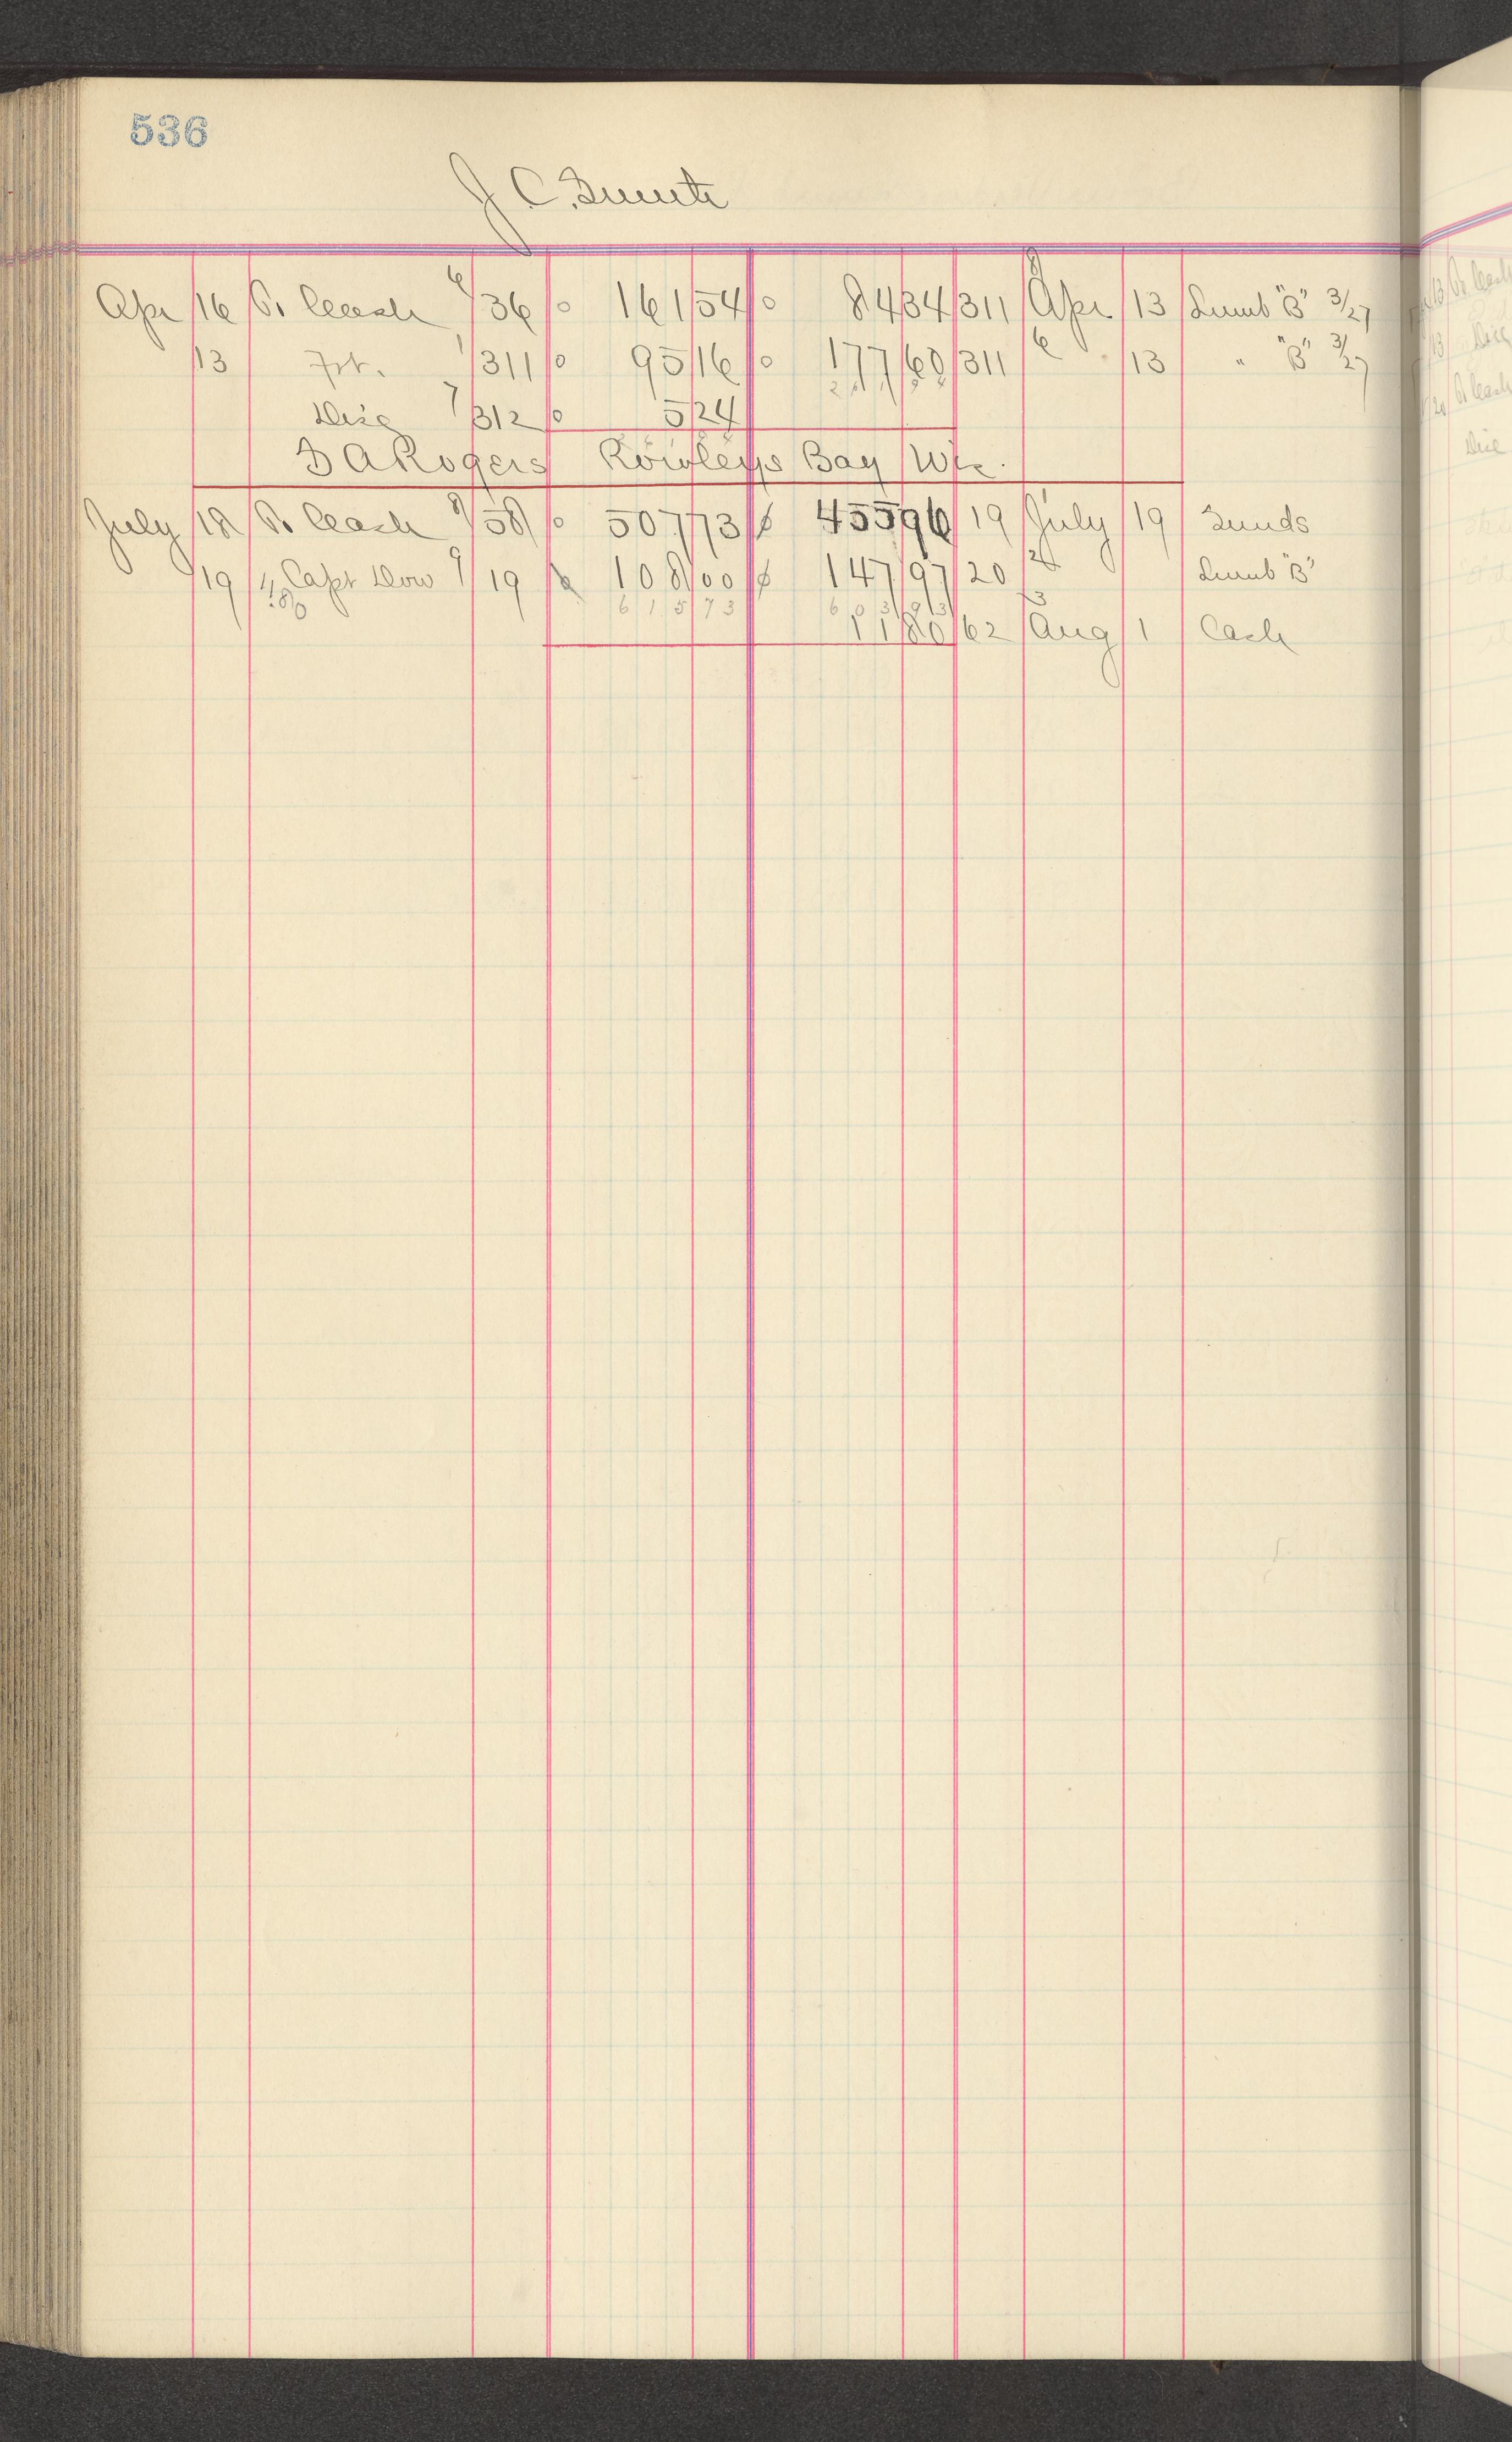 536
J. C.
Apr 16 P. Cash 6/36 o 161 54 o 84 34 311 8 Apr 13 Lumb "B" 3/27
13 Frt. 1/311 o 95 16 o 177 60 311 6 13 " "B" 3/27
Disc 7/312 o 5 24
Rogers Rowleys Bay Wis.
July 18 P. Cash 8/58 o 507 73 ø 455 96 19 1 July 19 Sunds
19 Capt Dow 9/19 108 00 ø 147 97 20 2 Lumb "B"
615 73 603 93
11 80 62 3 Aug 1 Cash